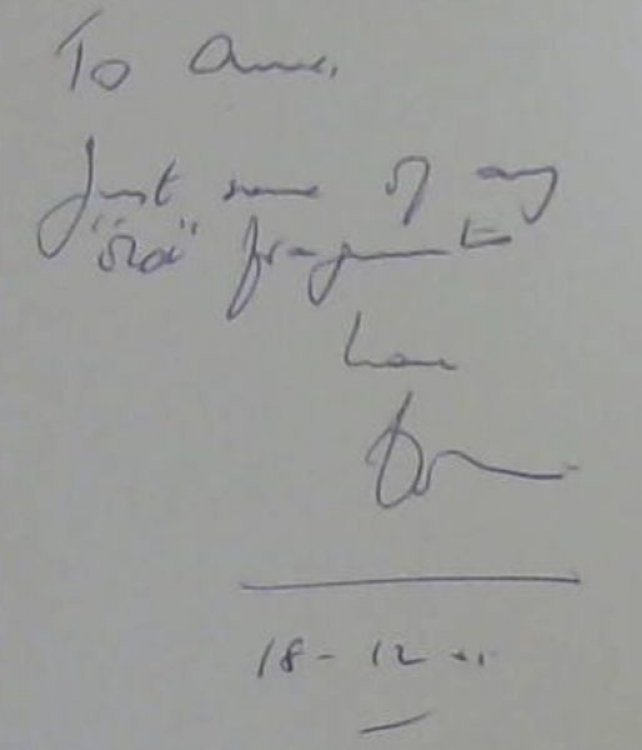 To Anne,
Just some of my
"old" fragments
Love
18-12